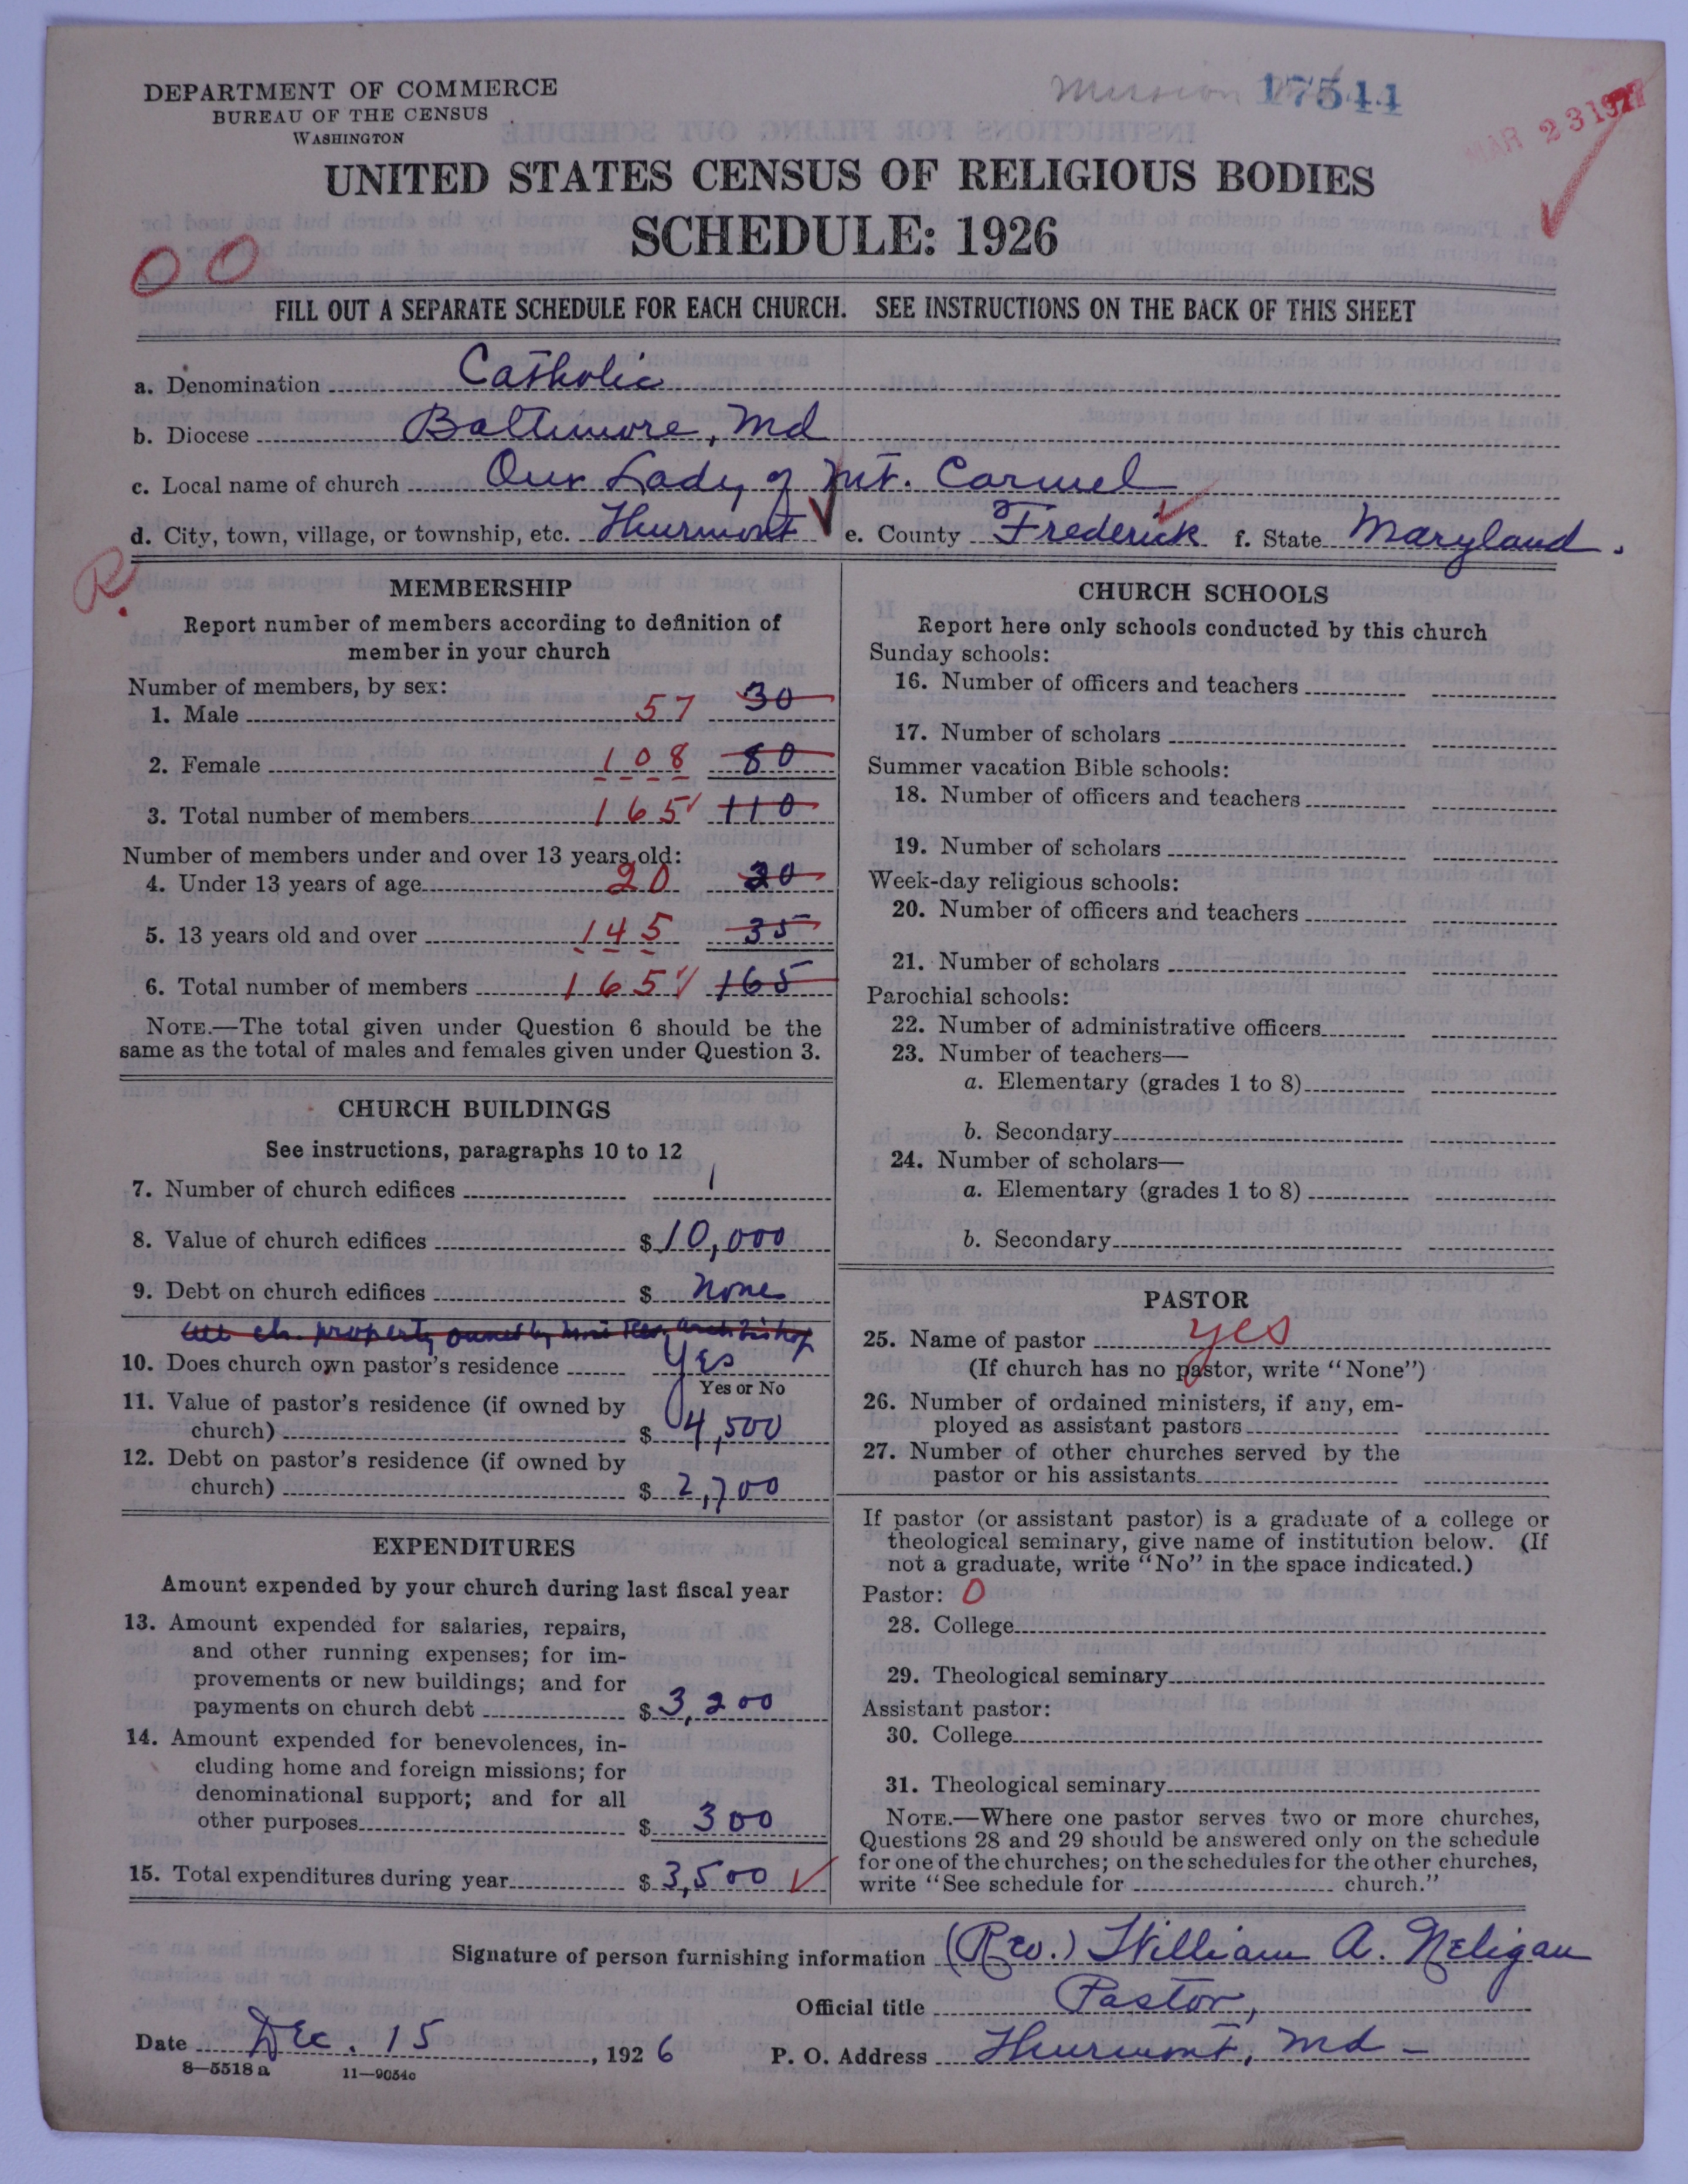 DEPARTMENT OF COMMERCE
BUREAU OF THE CENSUS
WASHINGTON
Mission 17544
MAR 23 1927
UNITED STATES CENSUS OF RELIGIOUS BODIES
SCHEDULE: 1926
00
FILL OUT A SEPARATE SCHEDULE FOR EACH CHURCH. SEE INSTRUCTIONS ON THE BACK OF THIS SHEET
a. Denomination Catholic
b. Diocese Baltimore, Md
c. Local name of church Our Lady of Mt. Carmel
d. City, town, village, or township, etc. Thurmont e. County Frederick f. State Maryland.
R.
MEMBERSHIP
Report number of members according to definition of
member in your church
Number of members, by sex:
1. Male 57 30
2. Female 108 80
3. Total number of members 165 110
Number of members under and over 13 years old:
4. Under 13 years of age 20 20
5. 13 years old and over 145 35
6. Total number of members 165 165
NOTE.—The total given under Question 6 should be the
same as the total of males and females given under Question 3.
CHURCH BUILDINGS
See instructions, paragraphs 10 to 12
7. Number of church edifices 1
8. Value of church edifices $ 10,000
9. Debt on church edifices $ None
All ch. property owned by Most Rev. Archbishop
10. Does church own pastor's residence Yes
Yes or No
11. Value of pastor's residence (if owned by
church) $ 4,500
12. Debt on pastor's residence (if owned by
church) $ 2,700
EXPENDITURES
Amount expended by your church during last fiscal year
13. Amount expended for salaries, repairs,
and other running expenses; for im-
provements or new buildings; and for
payments on church debt $ 3,200
14. Amount expended for benevolences, in-
cluding home and foreign missions; for
denominational support; and for all
other purposes $ 300
15. Total expenditures during year $ 3,500
CHURCH SCHOOLS
Report here only schools conducted by this church
Sunday schools:
16. Number of officers and teachers
17. Number of scholars
Summer vacation Bible schools:
18. Number of officers and teachers
19. Number of scholars
Week-day religious schools:
20. Number of officers and teachers
21. Number of scholars
Parochial schools:
22. Number of administrative officers
23. Number of teachers—
a. Elementary (grades 1 to 8)
b. Secondary
24. Number of scholars—
a. Elementary (grades 1 to 8)
b. Secondary
PASTOR
25. Name of pastor yes
(If church has no pastor, write "None")
26. Number of ordained ministers, if any, em-
ployed as assistant pastors
27. Number of other churches served by the
pastor or his assistants
If pastor (or assistant pastor) is a graduate of a college or
theological seminary, give name of institution below. (If
not a graduate, write "No" in the space indicated.)
Pastor: 0
28. College
29. Theological seminary
Assistant pastor:
30. College
31. Theological seminary
NOTE.—Where one pastor serves two or more churches,
Questions 28 and 29 should be answered only on the schedule
for one of the churches; on the schedules for the other churches,
write "See schedule for church."
Signature of person furnishing information (Rev.) William A. Neligan
Official title Pastor,
Date Dec. 15, 1926 P. O. Address Thurmont, Md –
8—5518 a 11—9054c